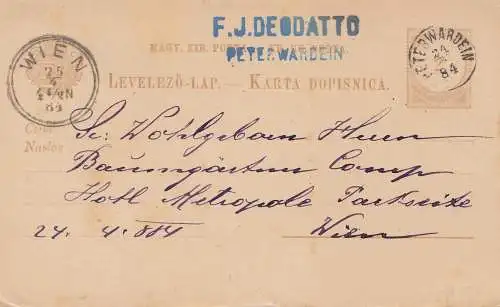 F.J.DEODATTO
MAGY. KIR. POSTA
PETERWARDEIN
WIEN
25
4
84
PETERWARDEIN
24
4
84
LEVELEZŐ-LAP. — KARTA DOPISNICA.
Naslov
Sr. Wohlgeboren Herrn
Baumgärtner Comp
Hotl Metropole Parkseite
24. 4. 884 Wien